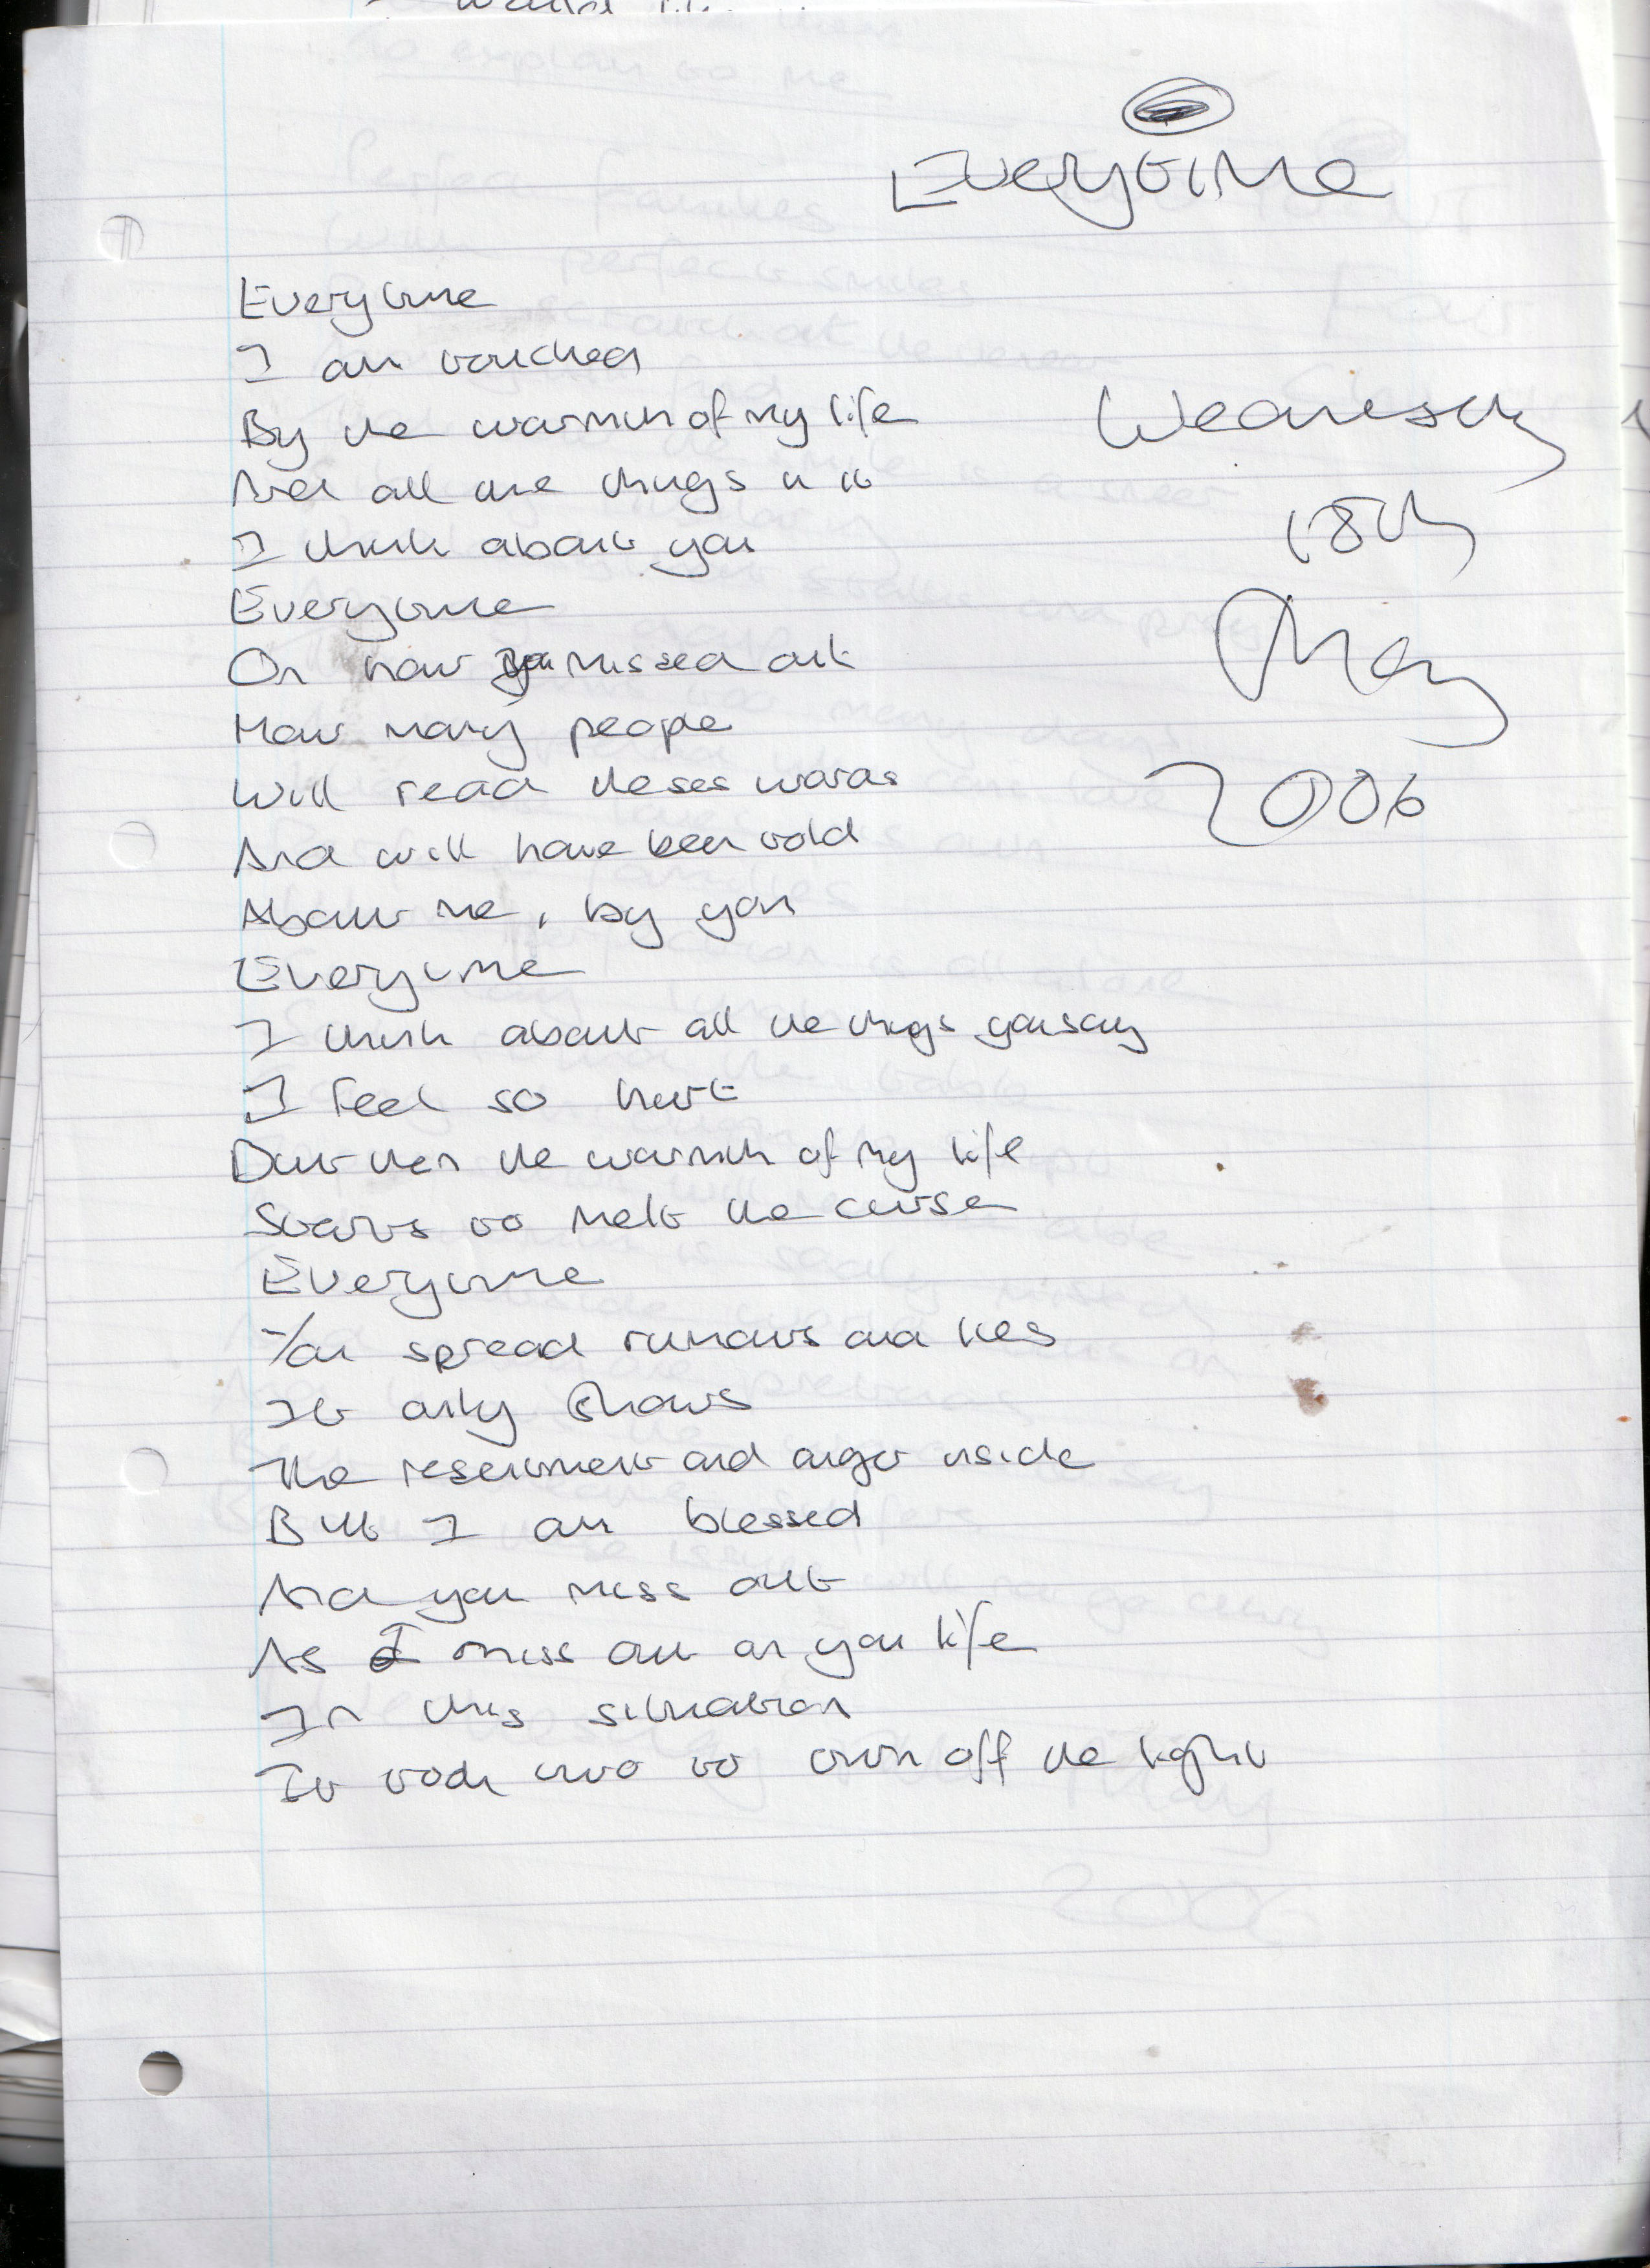 Everytime
Everytime
I am touched
By the warmth of my life
And all the things in it
I think about you
Everytime
On how you missed out
How many people
Will read theses words
And will have been told
About me, by you
Everytime
I think about all the things you say
I feel so hurt
But then the warmth of my life
Starts to melt the curse
Everytime
You spread rumours and lies
It only shows
The resentment and anger inside
But I am blessed
And you miss out
As I miss out on you life
In this situation
It took two to turn off the light
Wednesday
18th
May
2006